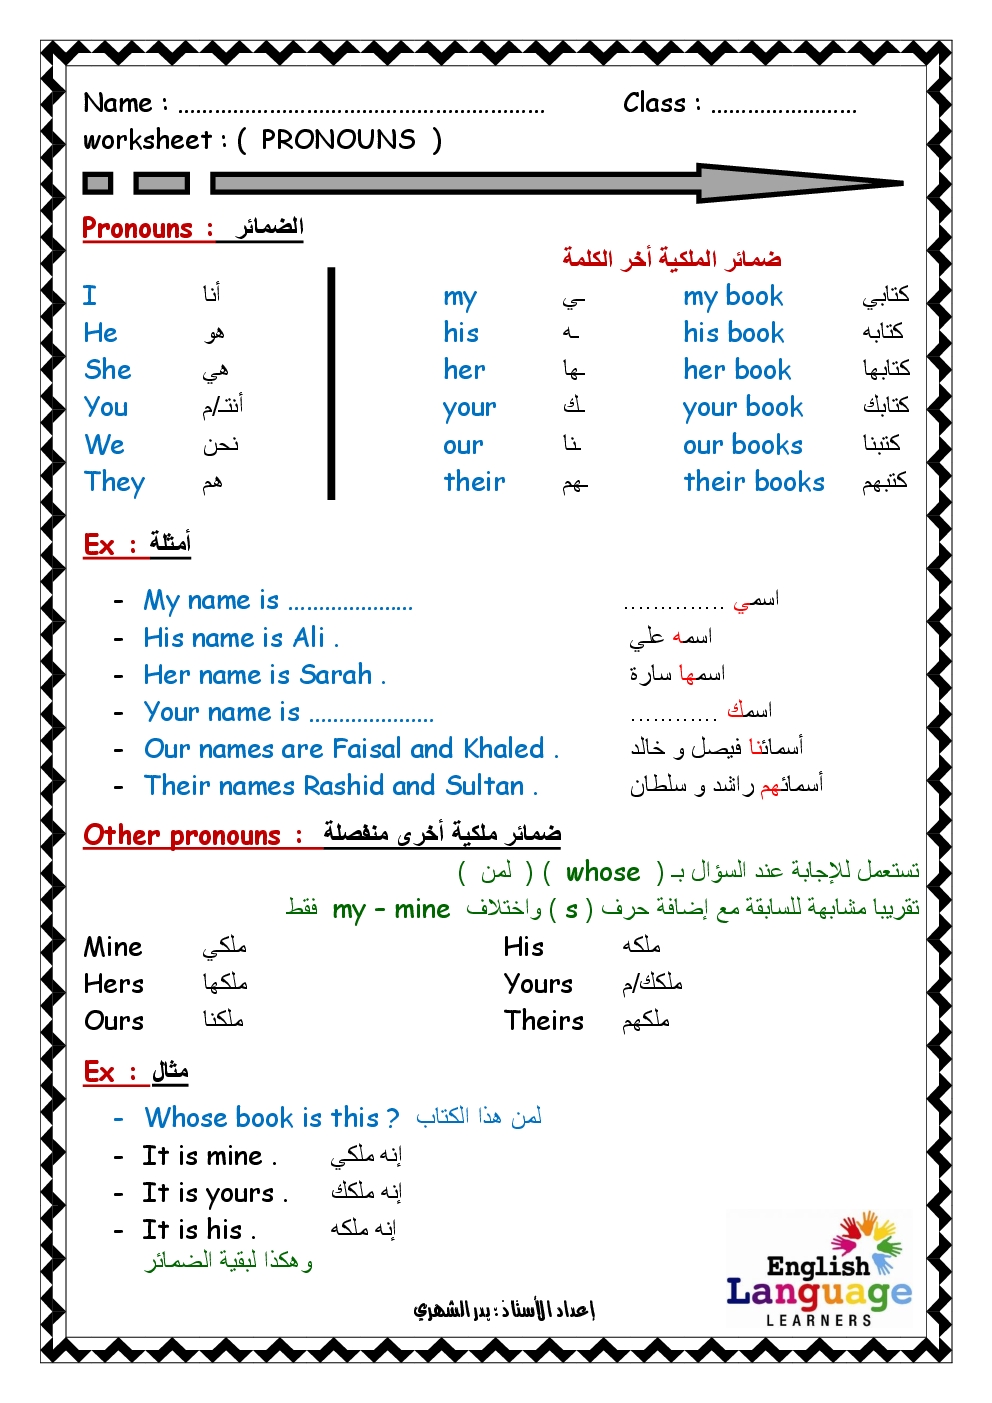 Name : ............................................................ Class : ........................
worksheet : ( PRONOUNS )
Pronouns : الضمائر
ضمائر الملكية أخر الكلمة
I أنا my ـي my book كتابي
He هو his ـه his book كتابه
She هي her ـها her book كتابها
You أنتـ/م your ـك your book كتابك
We نحن our ـنا our books كتبنا
They هم their ـهم their books كتبهم
Ex : أمثلة
- My name is ..................... اسمي .............
- His name is Ali . اسمه علي
- Her name is Sarah . اسمها سارة
- Your name is ..................... اسمك ............
- Our names are Faisal and Khaled . أسمائنا فيصل و خالد
- Their names Rashid and Sultan . أسمائهم راشد و سلطان
Other pronouns : ضمائر ملكية أخرى منفصلة
تستعمل للإجابة عند السؤال بـ ( whose ) ( لمن )
تقريبا مشابهة للسابقة مع إضافة حرف ( s ) واختلاف my – mine فقط
Mine ملكي His ملكه
Hers ملكها Yours ملكك/م
Ours ملكنا Theirs ملكهم
Ex : مثال
- Whose book is this ? لمن هذا الكتاب
- It is mine . إنه ملكي
- It is yours . إنه ملكك
- It is his . إنه ملكه
وهكذا لبقية الضمائر
English
Language
LEARNERS
إعداد الأستاذ : بدر الشهري